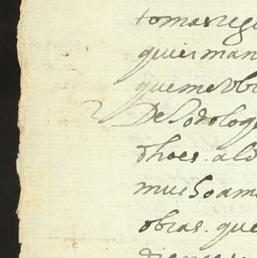 tomas reg
quiei man
que me ob
De Sodo log
dhoes. a ld
mucho am
obras. que